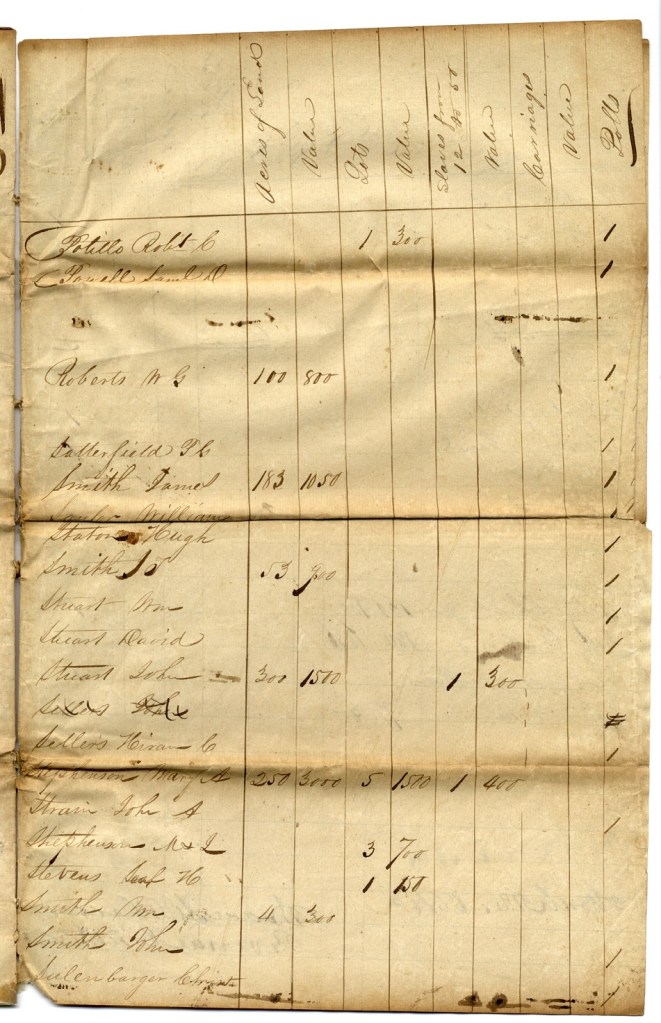 Acres of Land Value Lots Value Slaves from 12 to 50 Value Carriages Value Polls
Patillo Robt C 1 300 1
Powell Saml D 1
Roberts W G 100 800 1
Satterfield F G 1
Smith James 183 1050 1
William 1
Staton Hugh 1
Smith J 53 1
Stuart Wm 1
Stuart David 1
Stuart John 300 1500 1 300
Sellers John
Sellers Hiram C 1
Stephenson Mary A 250 3000 5 1500 1 400
Strain John A 1
Stephenson M & L 3 700
Stevens H 1 150
Smith Wm 4 300
Smith John 1
Sulenbarger 1